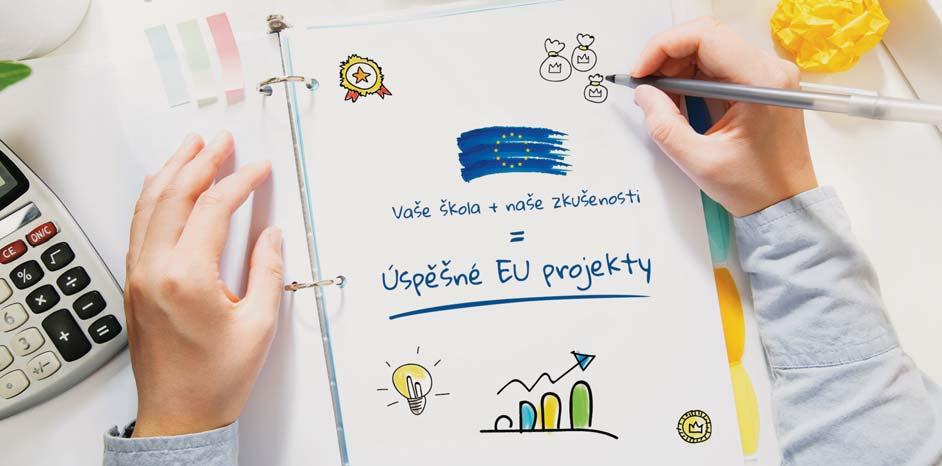 Vaše škola + naše zkušenosti
=
Úspěšné EU projekty
ON/C
CE
%
√
×
÷
6
+
-
3
+/-
=